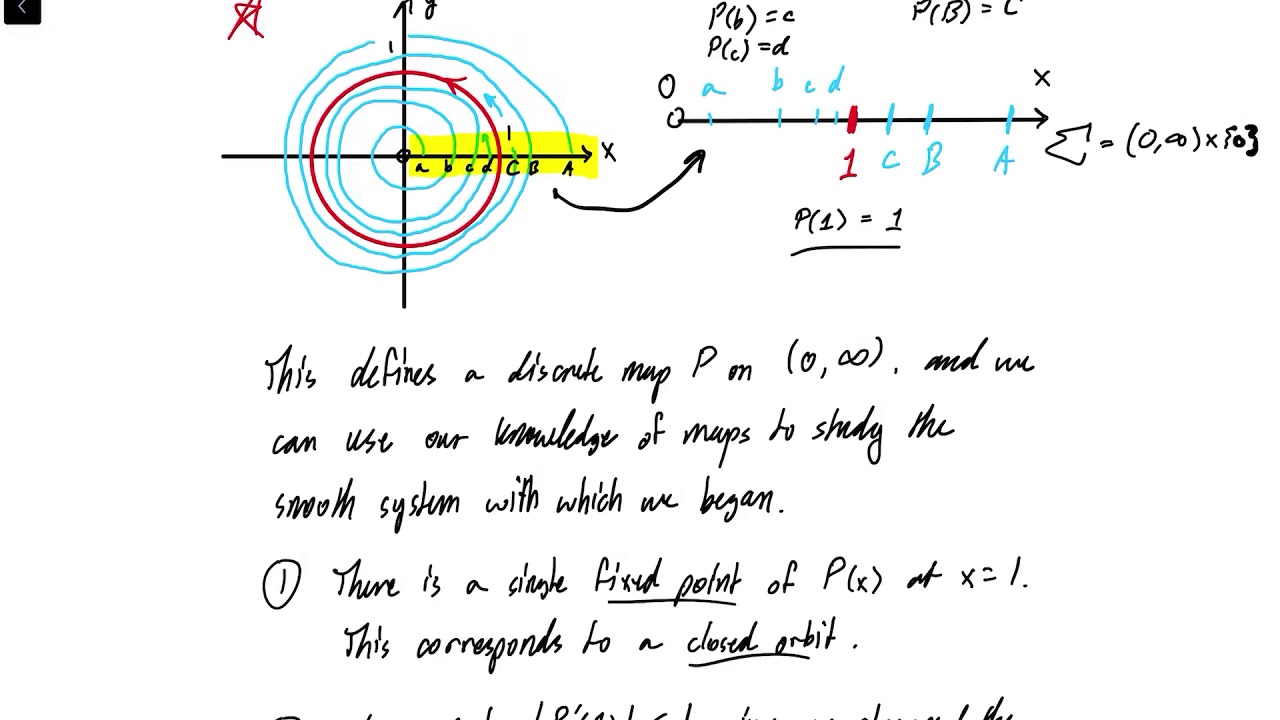 y
P(b) = c
P(B) = C
P(c) = d
1
0 a b c d x
1
x
a b c d C B A
1 C B A
Σ = (0,∞) x {0}
P(1) = 1
This defines a discrete map P on (0,∞), and we
can use our knowledge of maps to study the
smooth system with which we began.
① There is a single fixed point of P(x) at x=1.
This corresponds to a closed orbit.